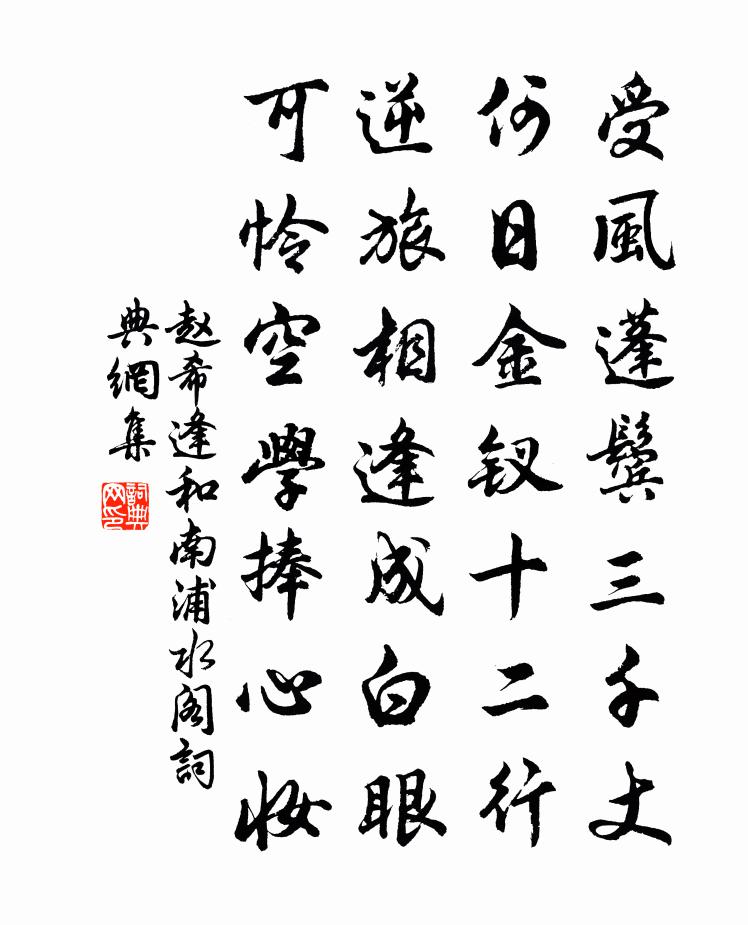 受風蓬鬢三千丈
何日金釵十二行
逆旅相逢成白眼
可怜空學捧心妆
赵希逢和南浦水阁詞
典網集
詞典网印